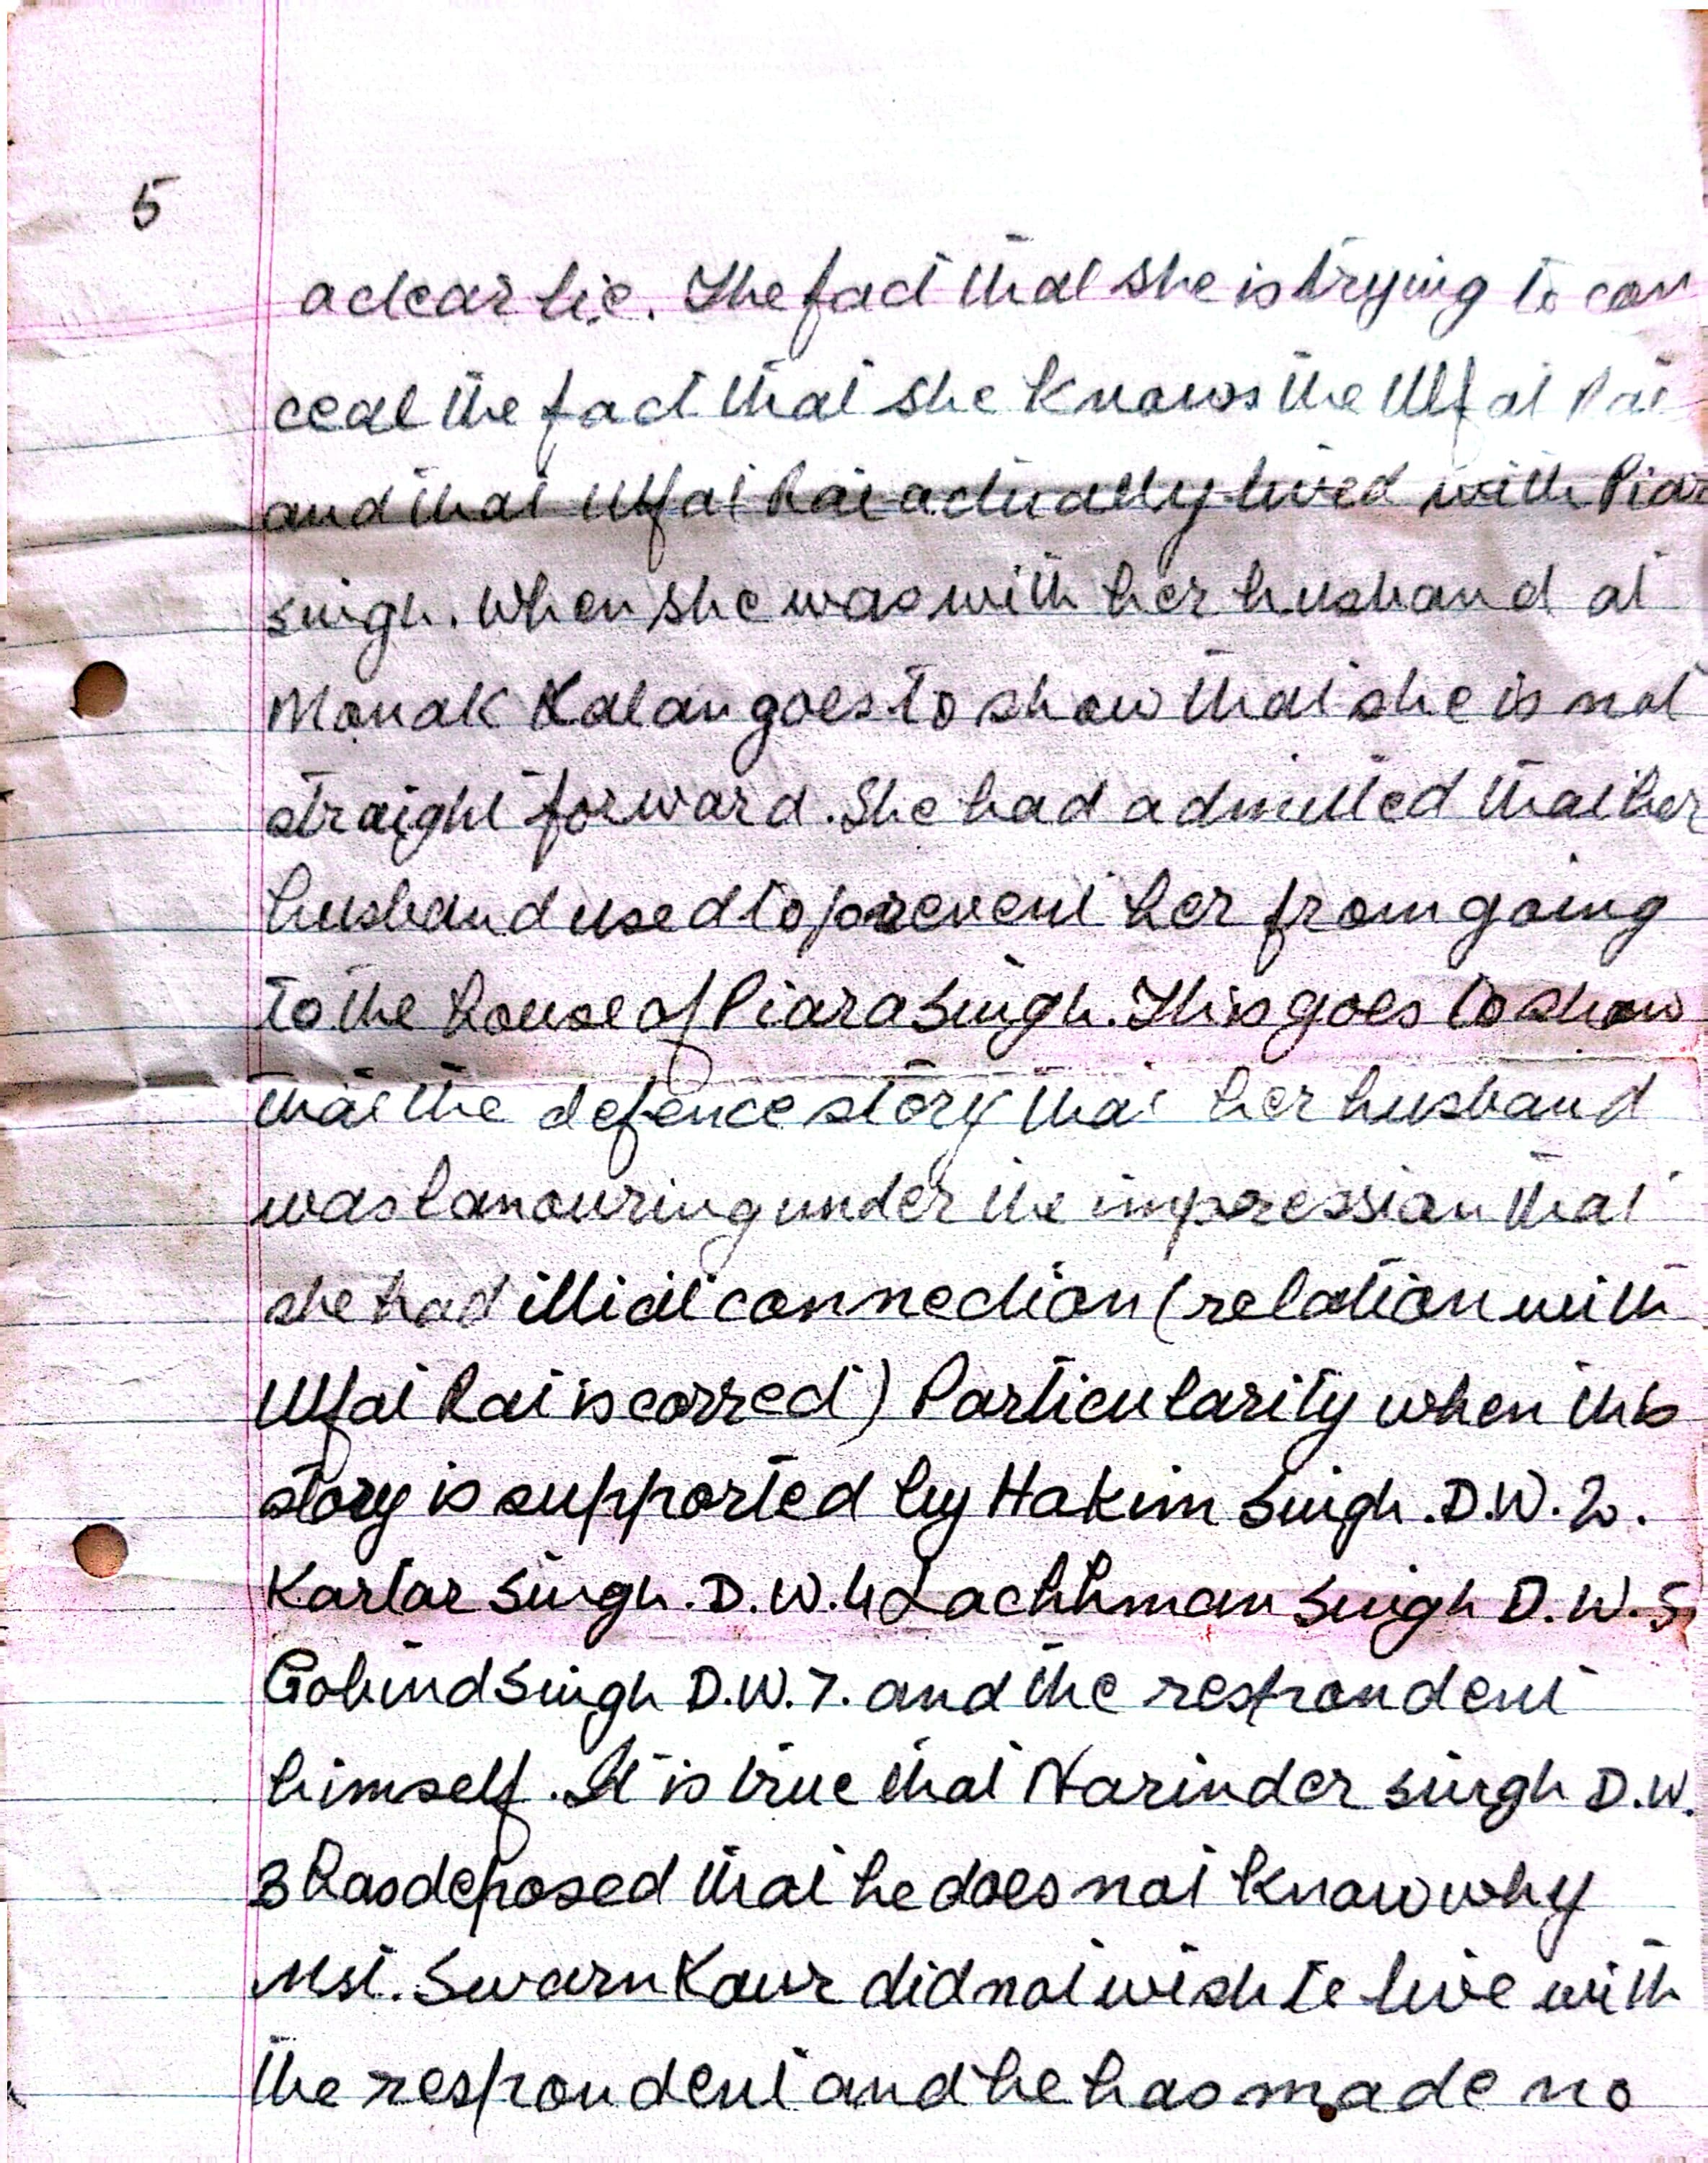 5
a clear lie. The fact that she is trying to con
ceal the fact that she knows the Ulfat Rai
and that Ulfat Rai actually lived with Piar
singh. When she was with her husband at
Manak Kalan goes to show that she is not
straight forward. She had admitted that her
husband used to prevent her from going
to the house of Piara Singh. This goes to show
that the defence story that her husband
was lanouring under the impression that
she had illicit connection (relation with
Ulfat Rai is correct) Particularity when this
story is supported by Hakim Singh. D.W. 2.
Kartar Singh. D.W. 4 Lachhman Singh D.W. 5
Gobind Singh D.W. 7. and the respondent
himself. It is true that Narinder Singh D.W.
3 has deposed that he does not know why
Mst. Swarn Kaur did not wish to live with
the respondent and he has made no